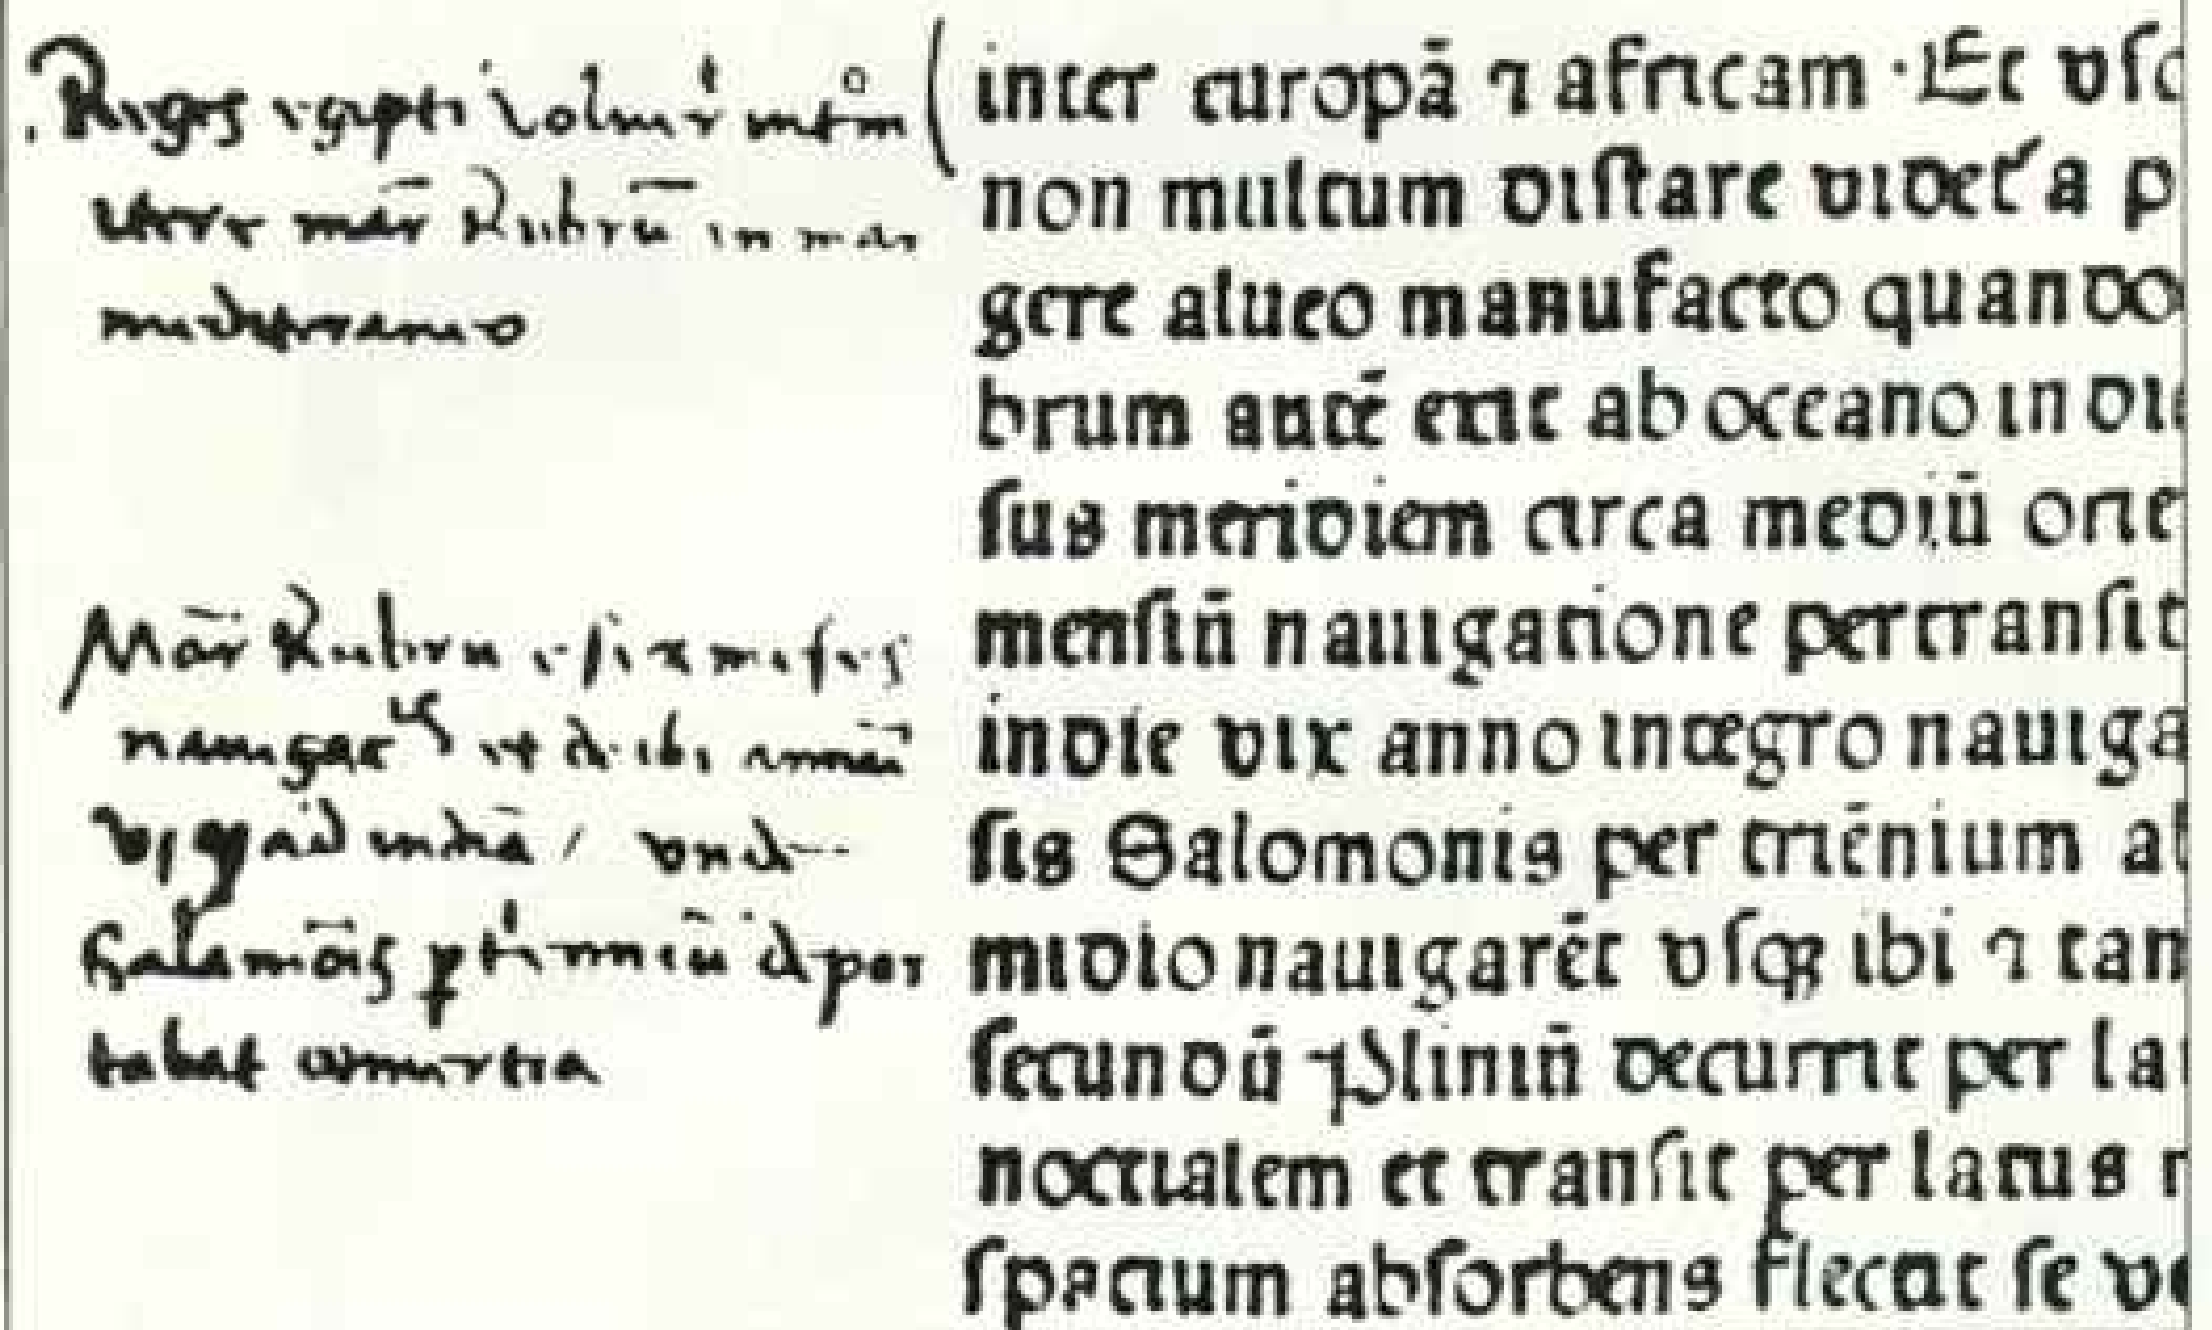 Reges egepti voluerūt
mar̄ Rubrū in mar
mediterraneo
Mar̄ Rubru sex mēsis
navigat et de ibi
usqȝ ad indiā / unde
Salamōis ꝑ trienniū depor
tabat
inter europā ⁊ africam · Et vſq
non multum diſtare videt᷑ a p
gere alueo manufacto quando
brum autē exit ab oceano indi
ſus meridiem circa mediū orie
menſiū nauigatione pertranſit
indie vix anno integro nauiga
ſis Salomonis per triēnium ab
midio nauigarēt vſqȝ ibi ⁊ tan
ſecundū Pliniū decurrit per la
noctialem et tranſit per latus
ſpacium abſorbens flectit ſe ve